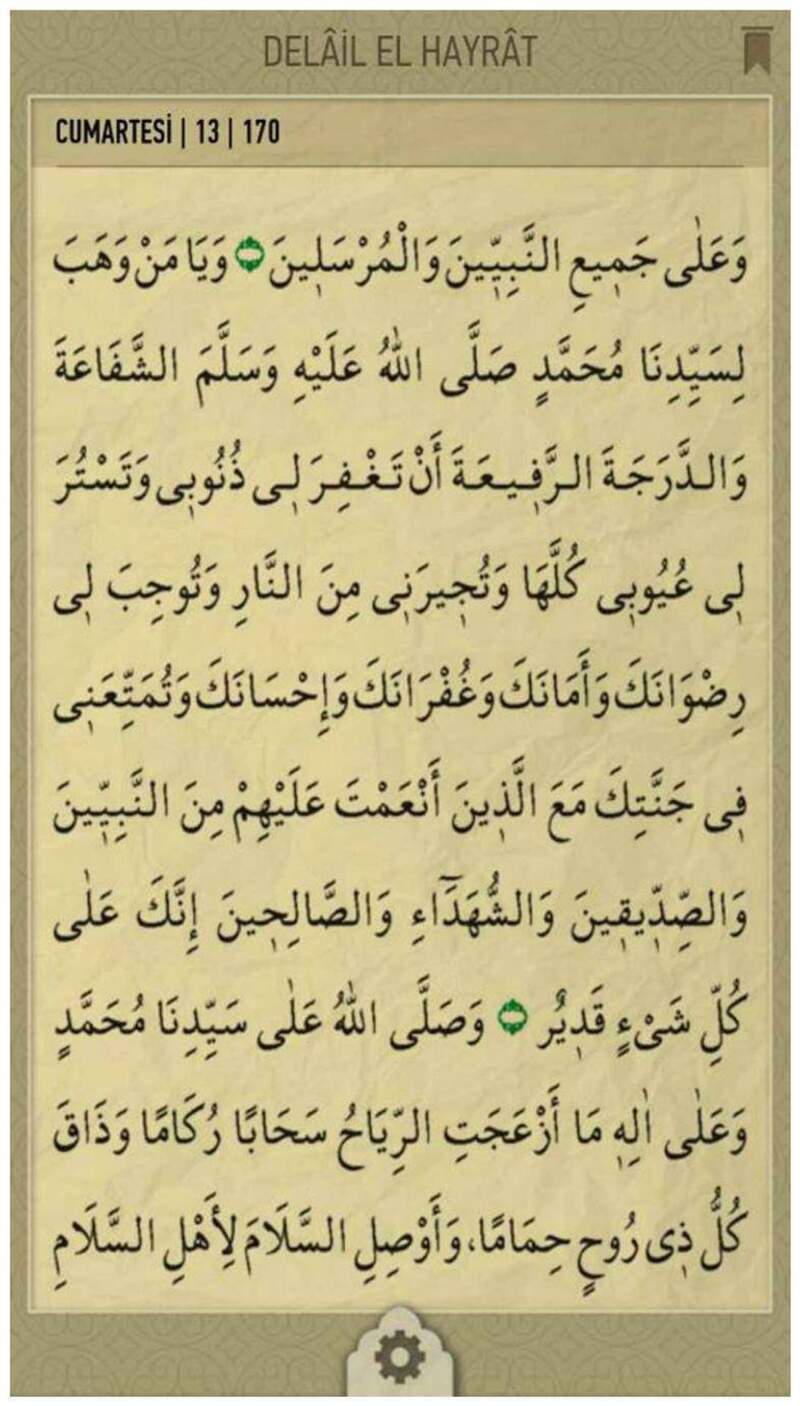 DELÂİL EL HAYRÂT
CUMARTESİ | 13 | 170
وَعَلٰى جَمِيعِ النَّبِيِّينَ وَالْمُرْسَلِينَ ۝ وَيَا مَنْ وَهَبَ
لِسَيِّدِنَا مُحَمَّدٍ صَلَّى اللّٰهُ عَلَيْهِ وَسَلَّمَ الشَّفَاعَةَ
وَالدَّرَجَةَ الرَّفِيعَةَ أَنْ تَغْفِرَ لِى ذُنُوبِى وَتَسْتُرَ
لِى عُيُوبِى كُلَّهَا وَتُجِيرَنِى مِنَ النَّارِ وَتُوجِبَ لِى
رِضْوَانَكَ وَأَمَانَكَ وَغُفْرَانَكَ وَإِحْسَانَكَ وَتُمَتِّعَنِى
فِى جَنَّتِكَ مَعَ الَّذِينَ أَنْعَمْتَ عَلَيْهِمْ مِنَ النَّبِيِّينَ
وَالصِّدِّيقِينَ وَالشُّهَدَٓاءِ وَالصَّالِحِينَ إِنَّكَ عَلٰى
كُلِّ شَىْءٍ قَدِيرٌ ۝ وَصَلَّى اللّٰهُ عَلٰى سَيِّدِنَا مُحَمَّدٍ
وَعَلٰى اٰلِهِ مَا أَزْعَجَتِ الرِّيَاحُ سَحَابًا رُكَامًا وَذَاقَ
كُلُّ ذِى رُوحٍ حِمَامًا، وَأَوْصِلِ السَّلَامَ لِأَهْلِ السَّلَامِ